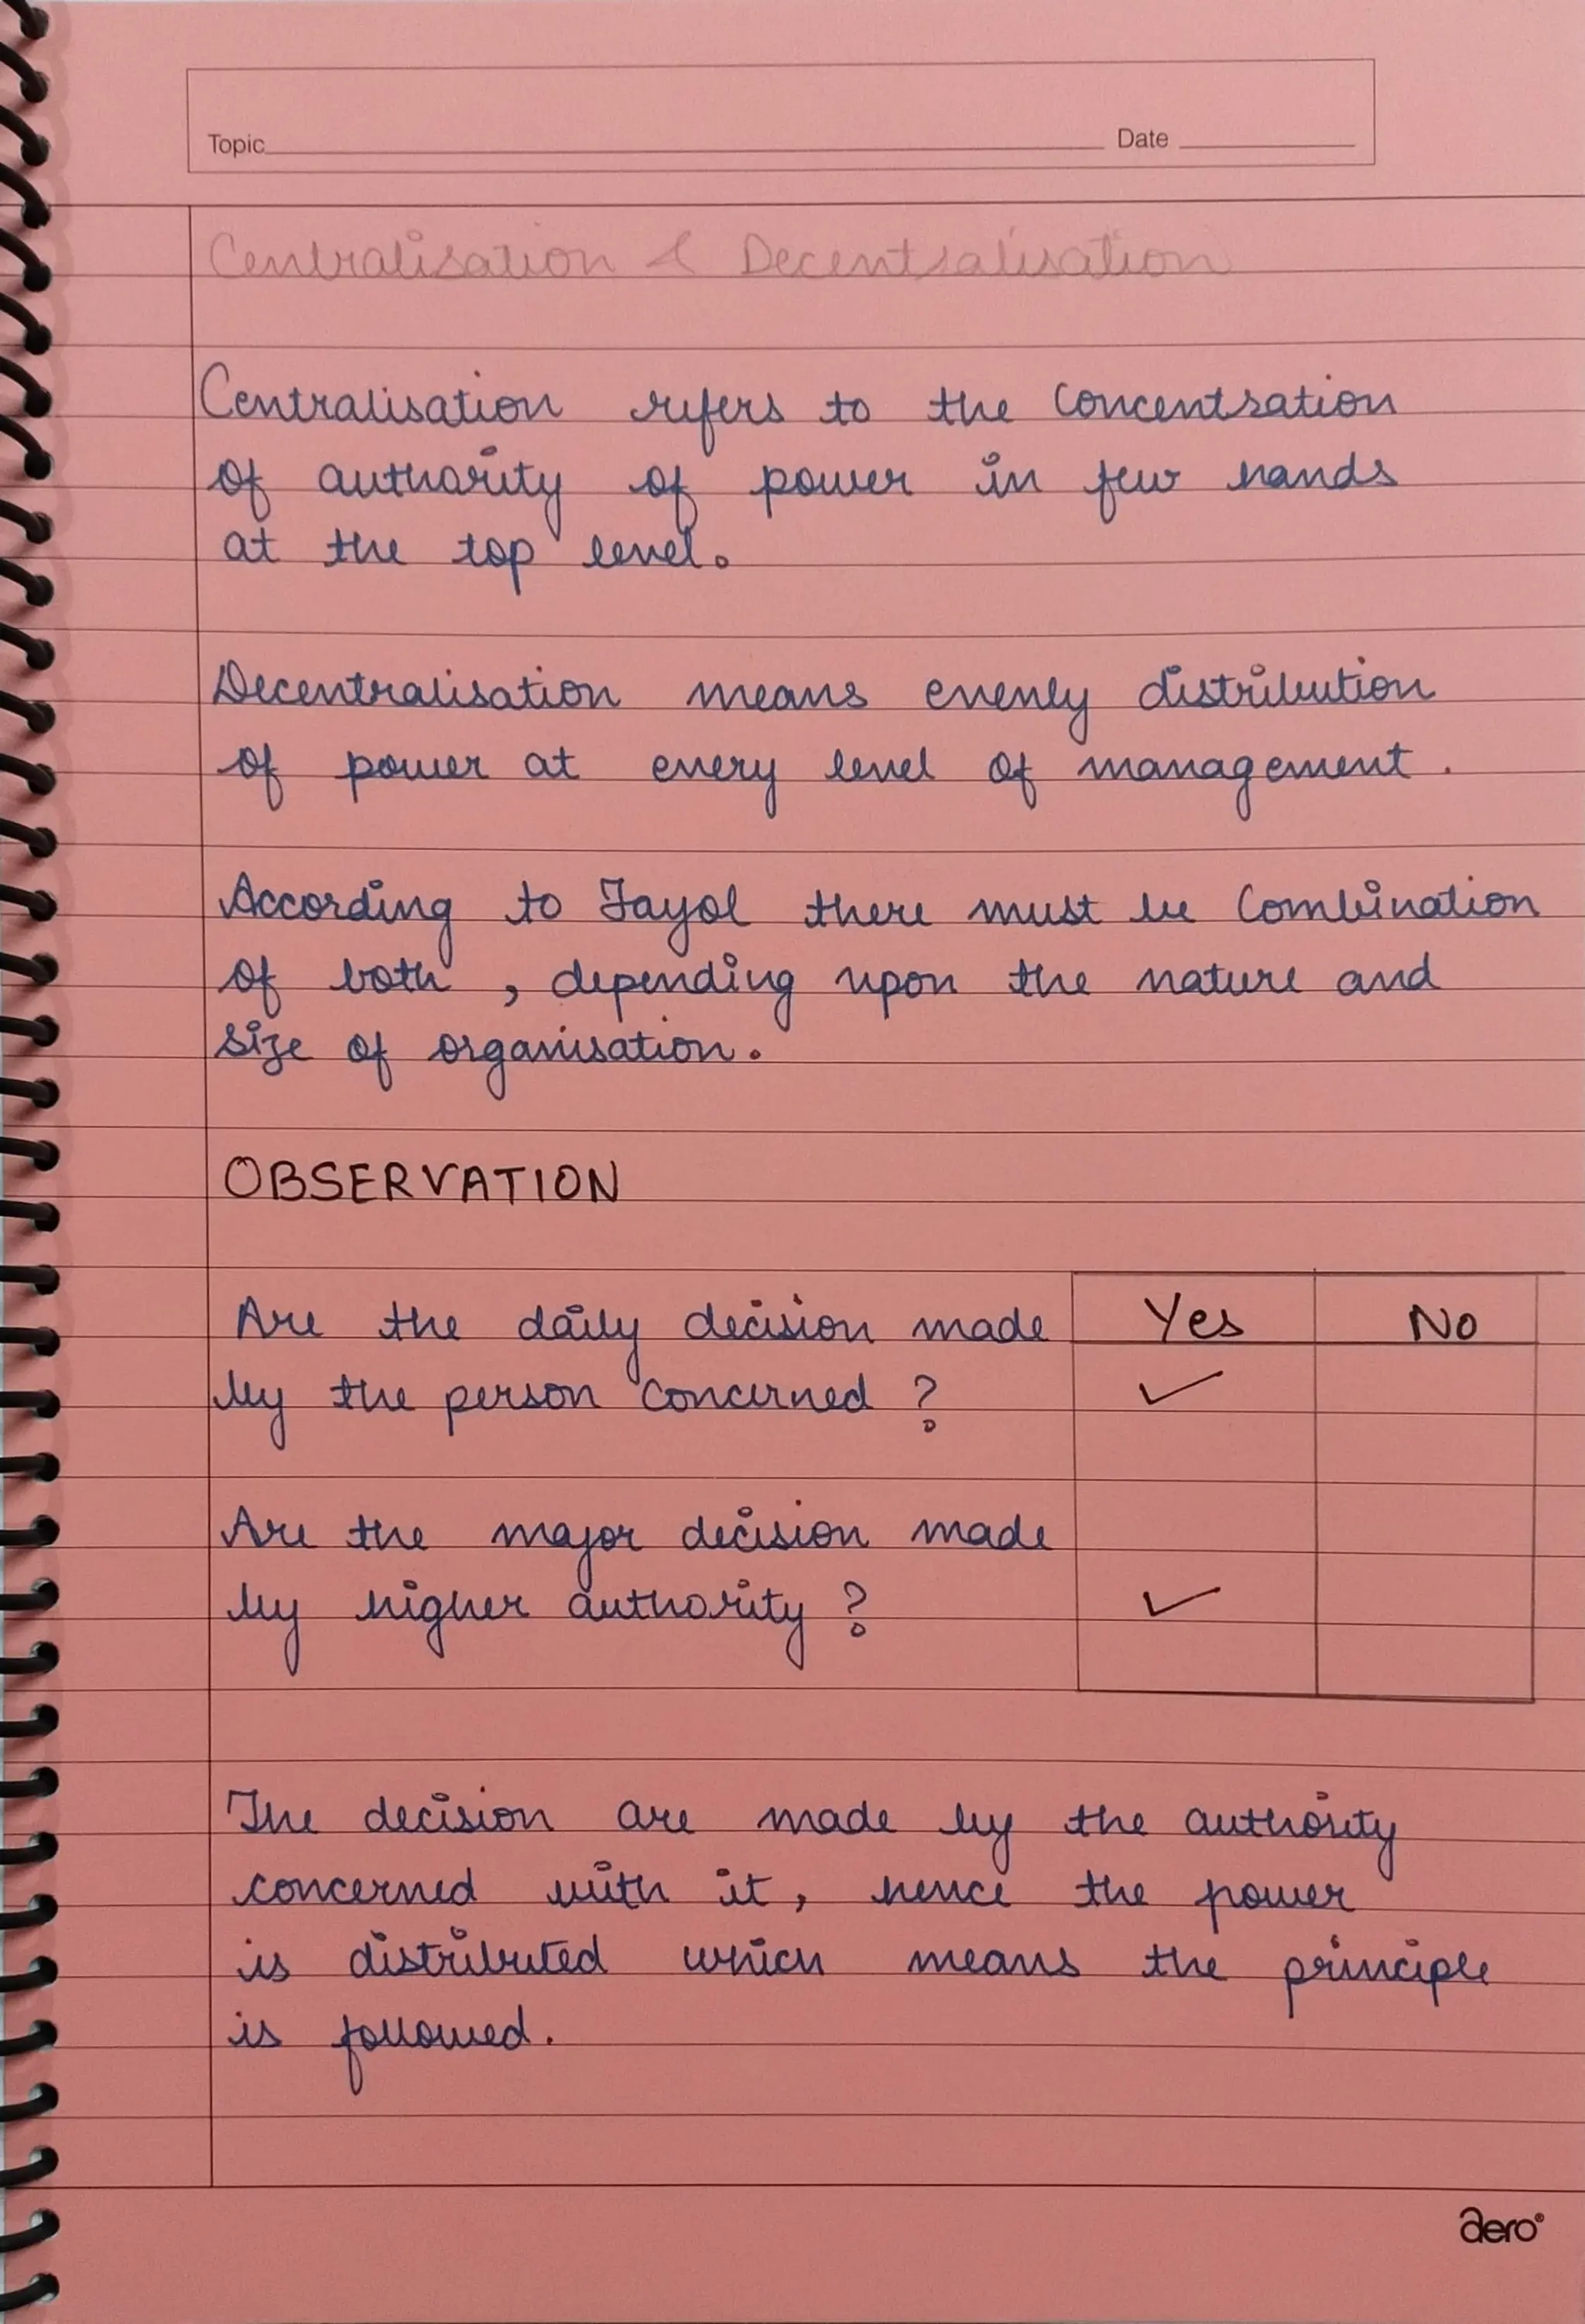 Topic Date
Centralisation & Decentralisation
Centralisation refers to the concentration
of authority of power in few hands
at the top level.
Decentralisation means evenly distribution
of power at every level of management.
According to Fayol there must be combination
of both, depending upon the nature and
size of organisation.
OBSERVATION
Are the daily decision made Yes No
by the person concerned? ✓
Are the major decision made
by higher authority? ✓
The decision are made by the authority
concerned with it, hence the power
is distributed which means the principle
is followed.
aero